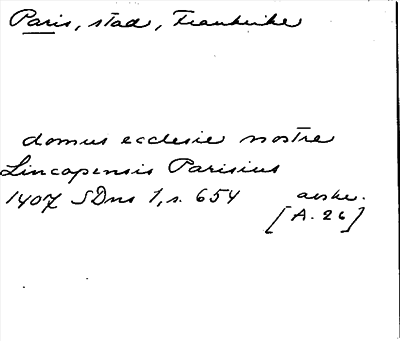 Paris, stad, Frankrike
domus ecclesie nostre
Lincopensis Parisius
1407 SDns 1, s. 654 avskr.
[A. 26]